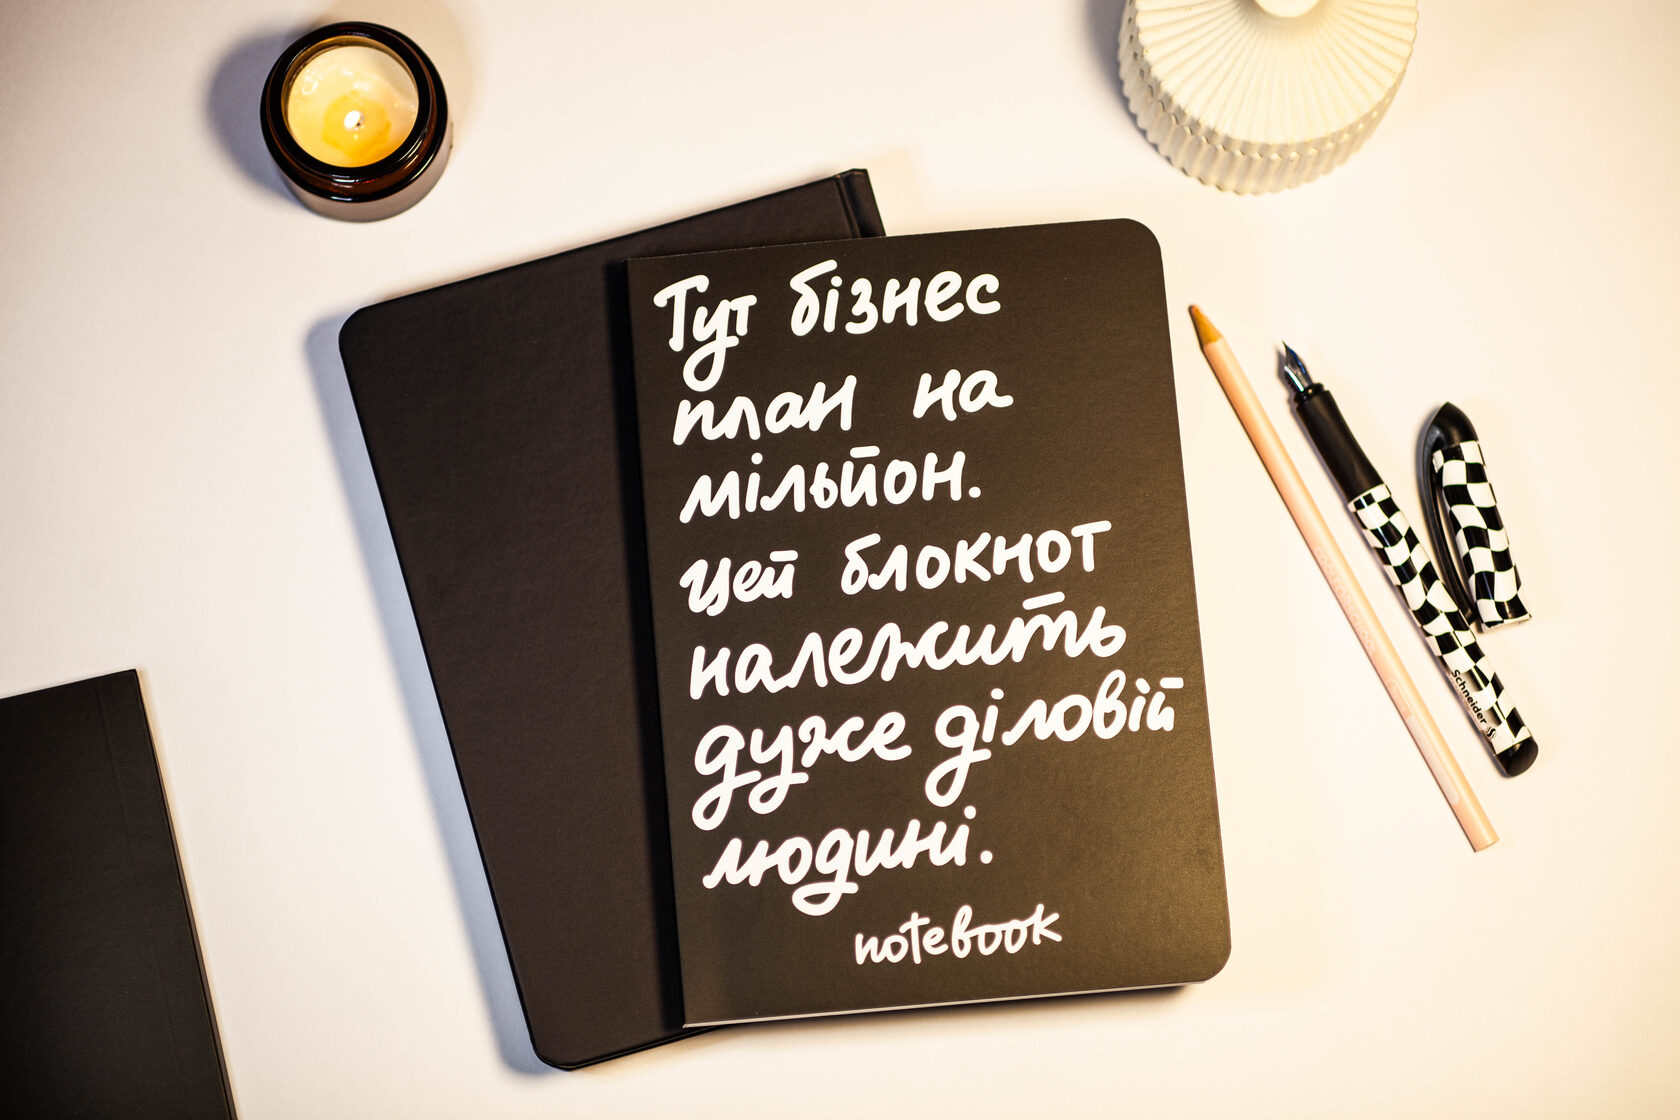 Тут бізнес
план на
мільйон.
Цей блокнот
належить
дуже діловій
людині.
notebook
Schneider